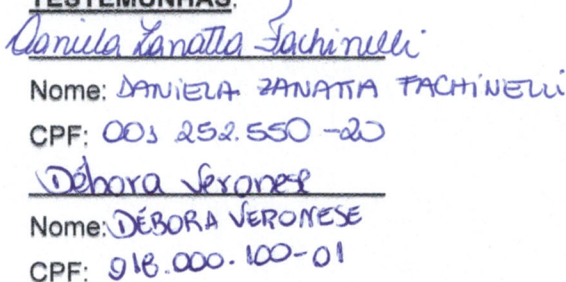 TESTEMUNHAS:
Daniela Zanatta Fachinelli
Nome: DANIELA ZANATTA FACHINELLI
CPF: 001 252.550-20
Débora Veronese
Nome: DÉBORA VERONESE
CPF: 918.000.100-01